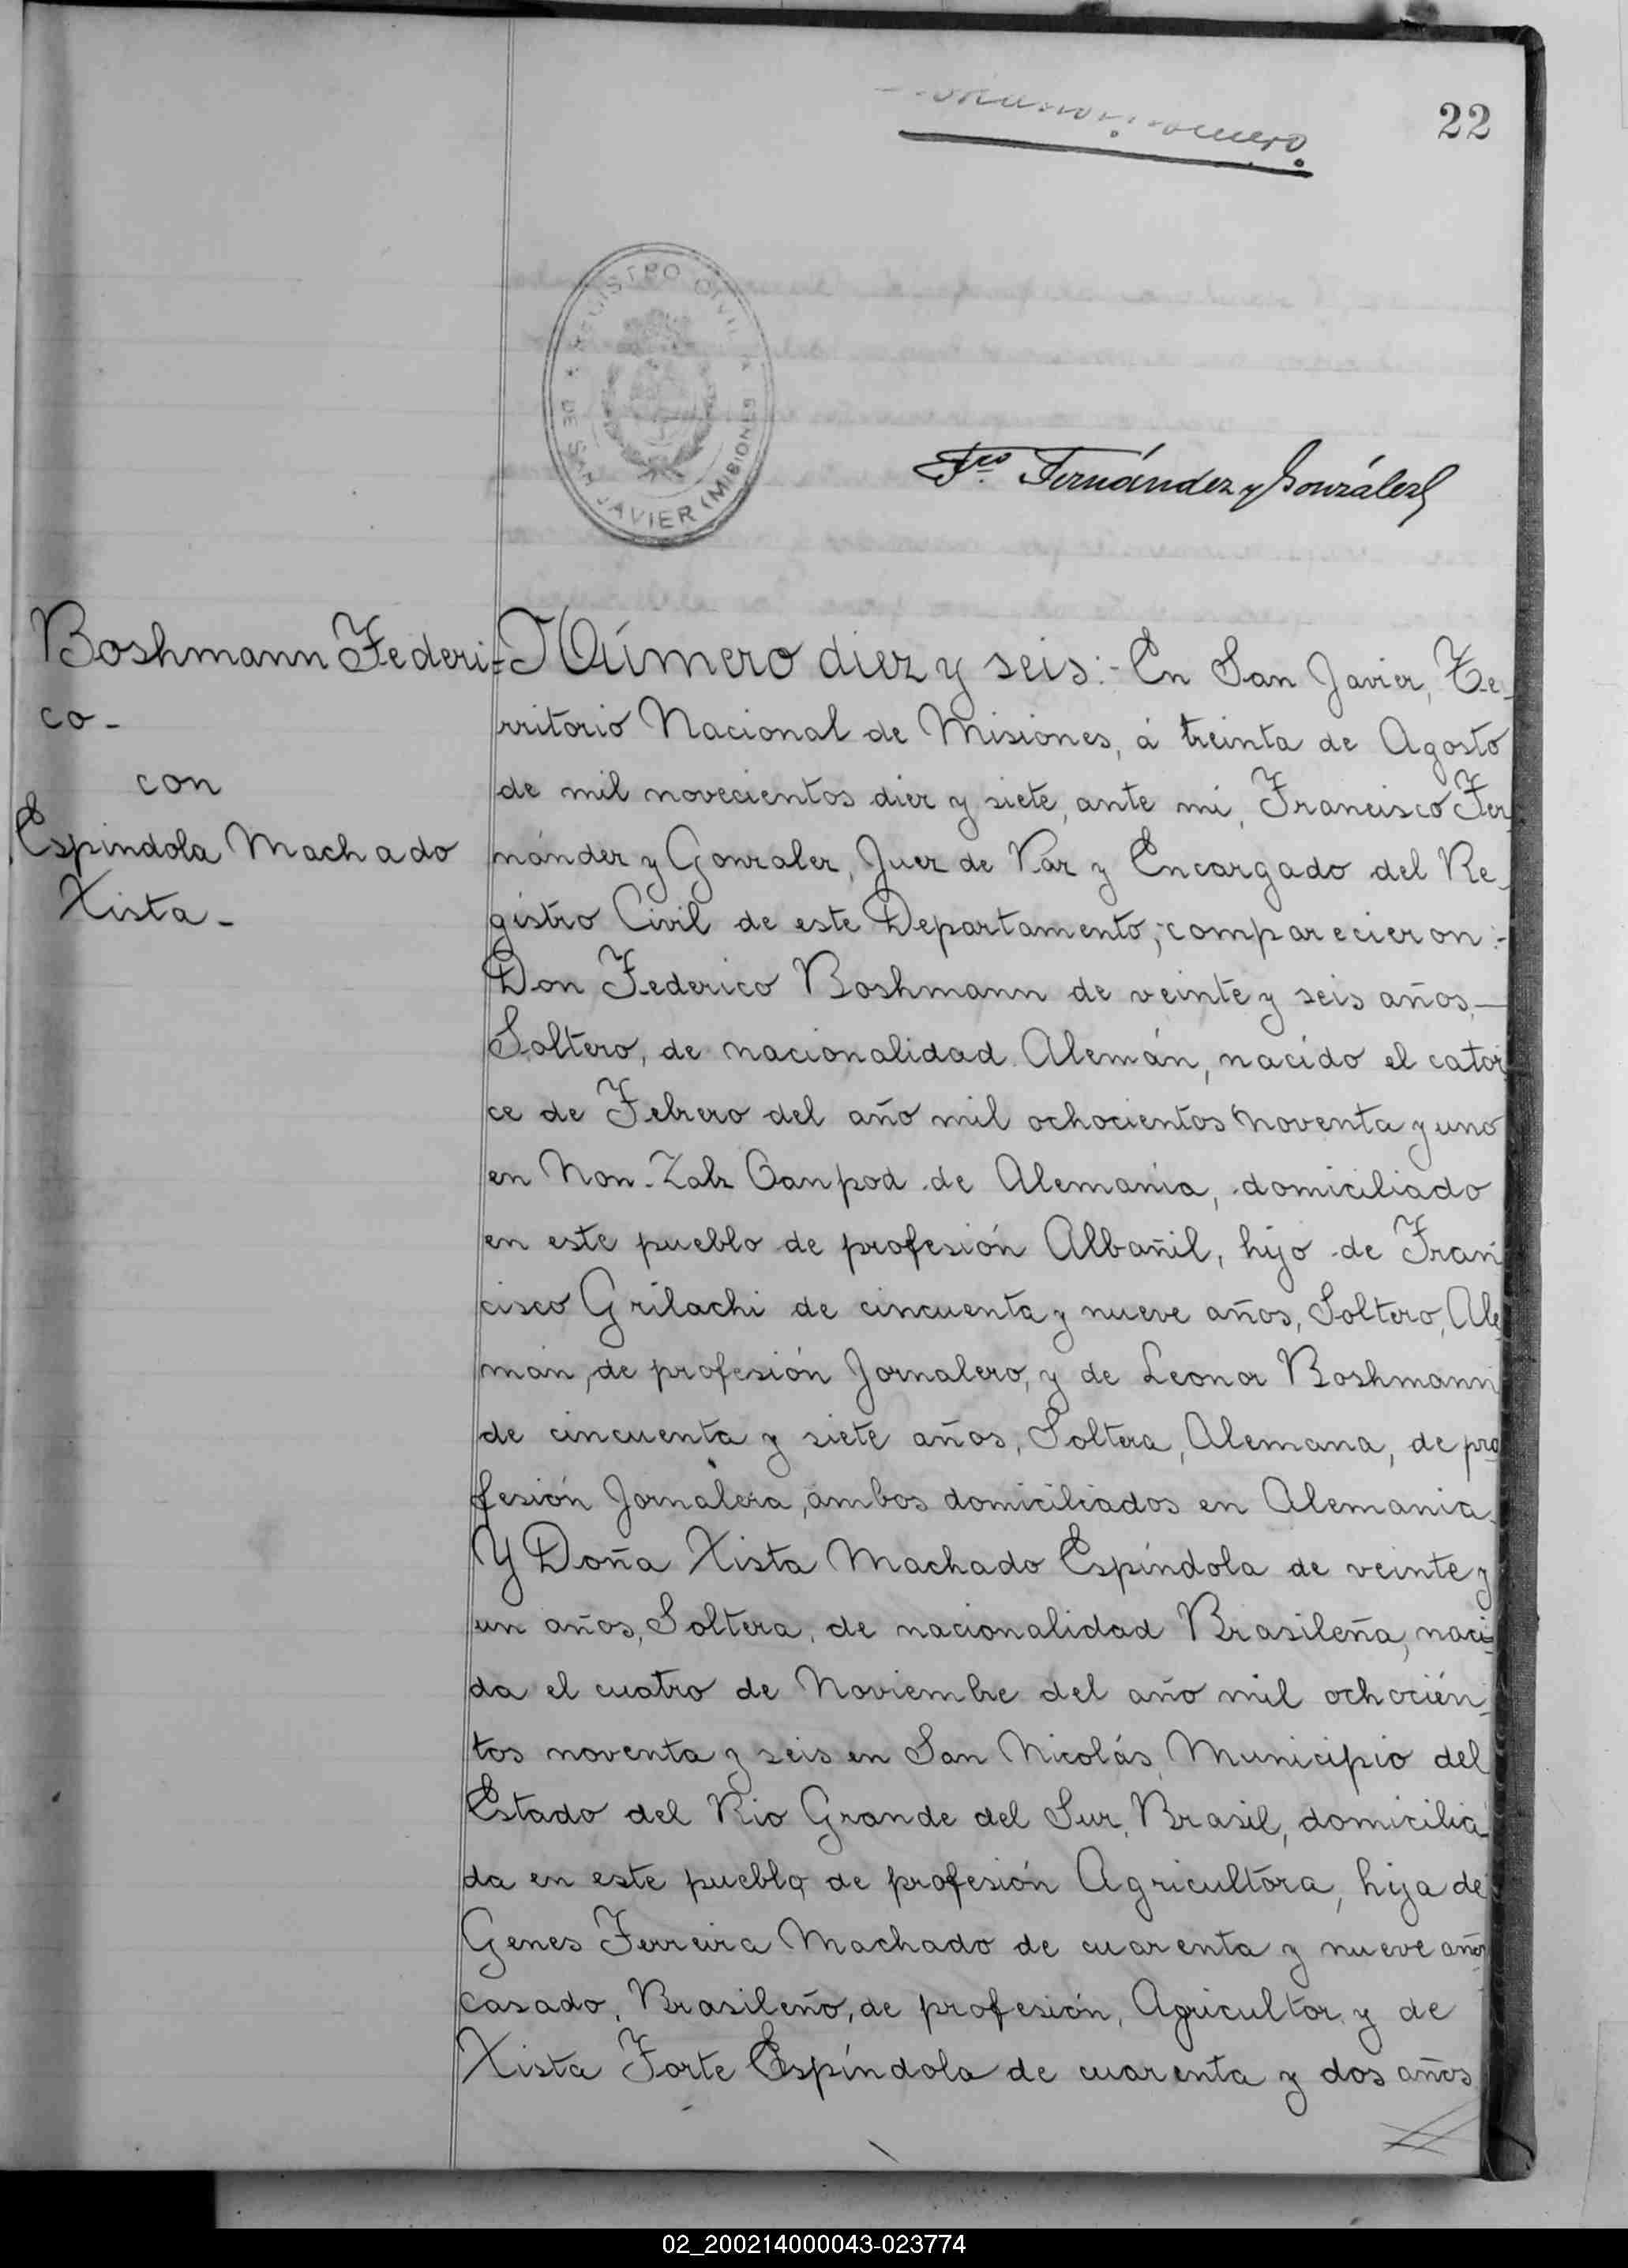 22
REGISTRO CIVIL
DE SAN JAVIER (MISIONES)
Fco. Fernández y González
Boshmann Federi-
co-
con
Espindola Machado
Xista-
Número diez y seis:- En San Javier, Te-
rritorio Nacional de Misiones, á treinta de Agosto
de mil novecientos diez y siete, ante mi, Francisco Fer
nández y Gonzalez, Juez de Paz y Encargado del Re-
gistro Civil de este Departamento, comparecieron:-
Don Federico Boshmann de veinte y seis años-
Soltero, de nacionalidad Alemán, nacido el cator
ce de Febrero del año mil ochocientos noventa y uno
en Non-Zalz Oanpod de Alemania, domiciliado
en este pueblo de profesión Albañil, hijo de Fran
cisco Grilachi de cincuenta y nueve años, Soltero, Ale
mán, de profesión Jornalero, y de Leonor Boshmann
de cincuenta y siete años, Soltera, Alemana, de pro
fesión Jornalera, ambos domiciliados en Alemania.
Y Doña Xista Machado Espíndola de veinte y
un años, Soltera, de nacionalidad Brasileña, naci-
da el cuatro de Noviembre del año mil ochocién-
tos noventa y seis en San Nicolás, Municipio del
Estado del Rio Grande del Sur, Brasil, domicilia
da en este pueblo, de profesión Agricultora, hija de
Genes Ferreira Machado de cuarenta y nueve años
casado, Brasileño, de profesión, Agricultor, y de
Xista Forte Espíndola de cuarenta y dos años
02_200214000043-023774